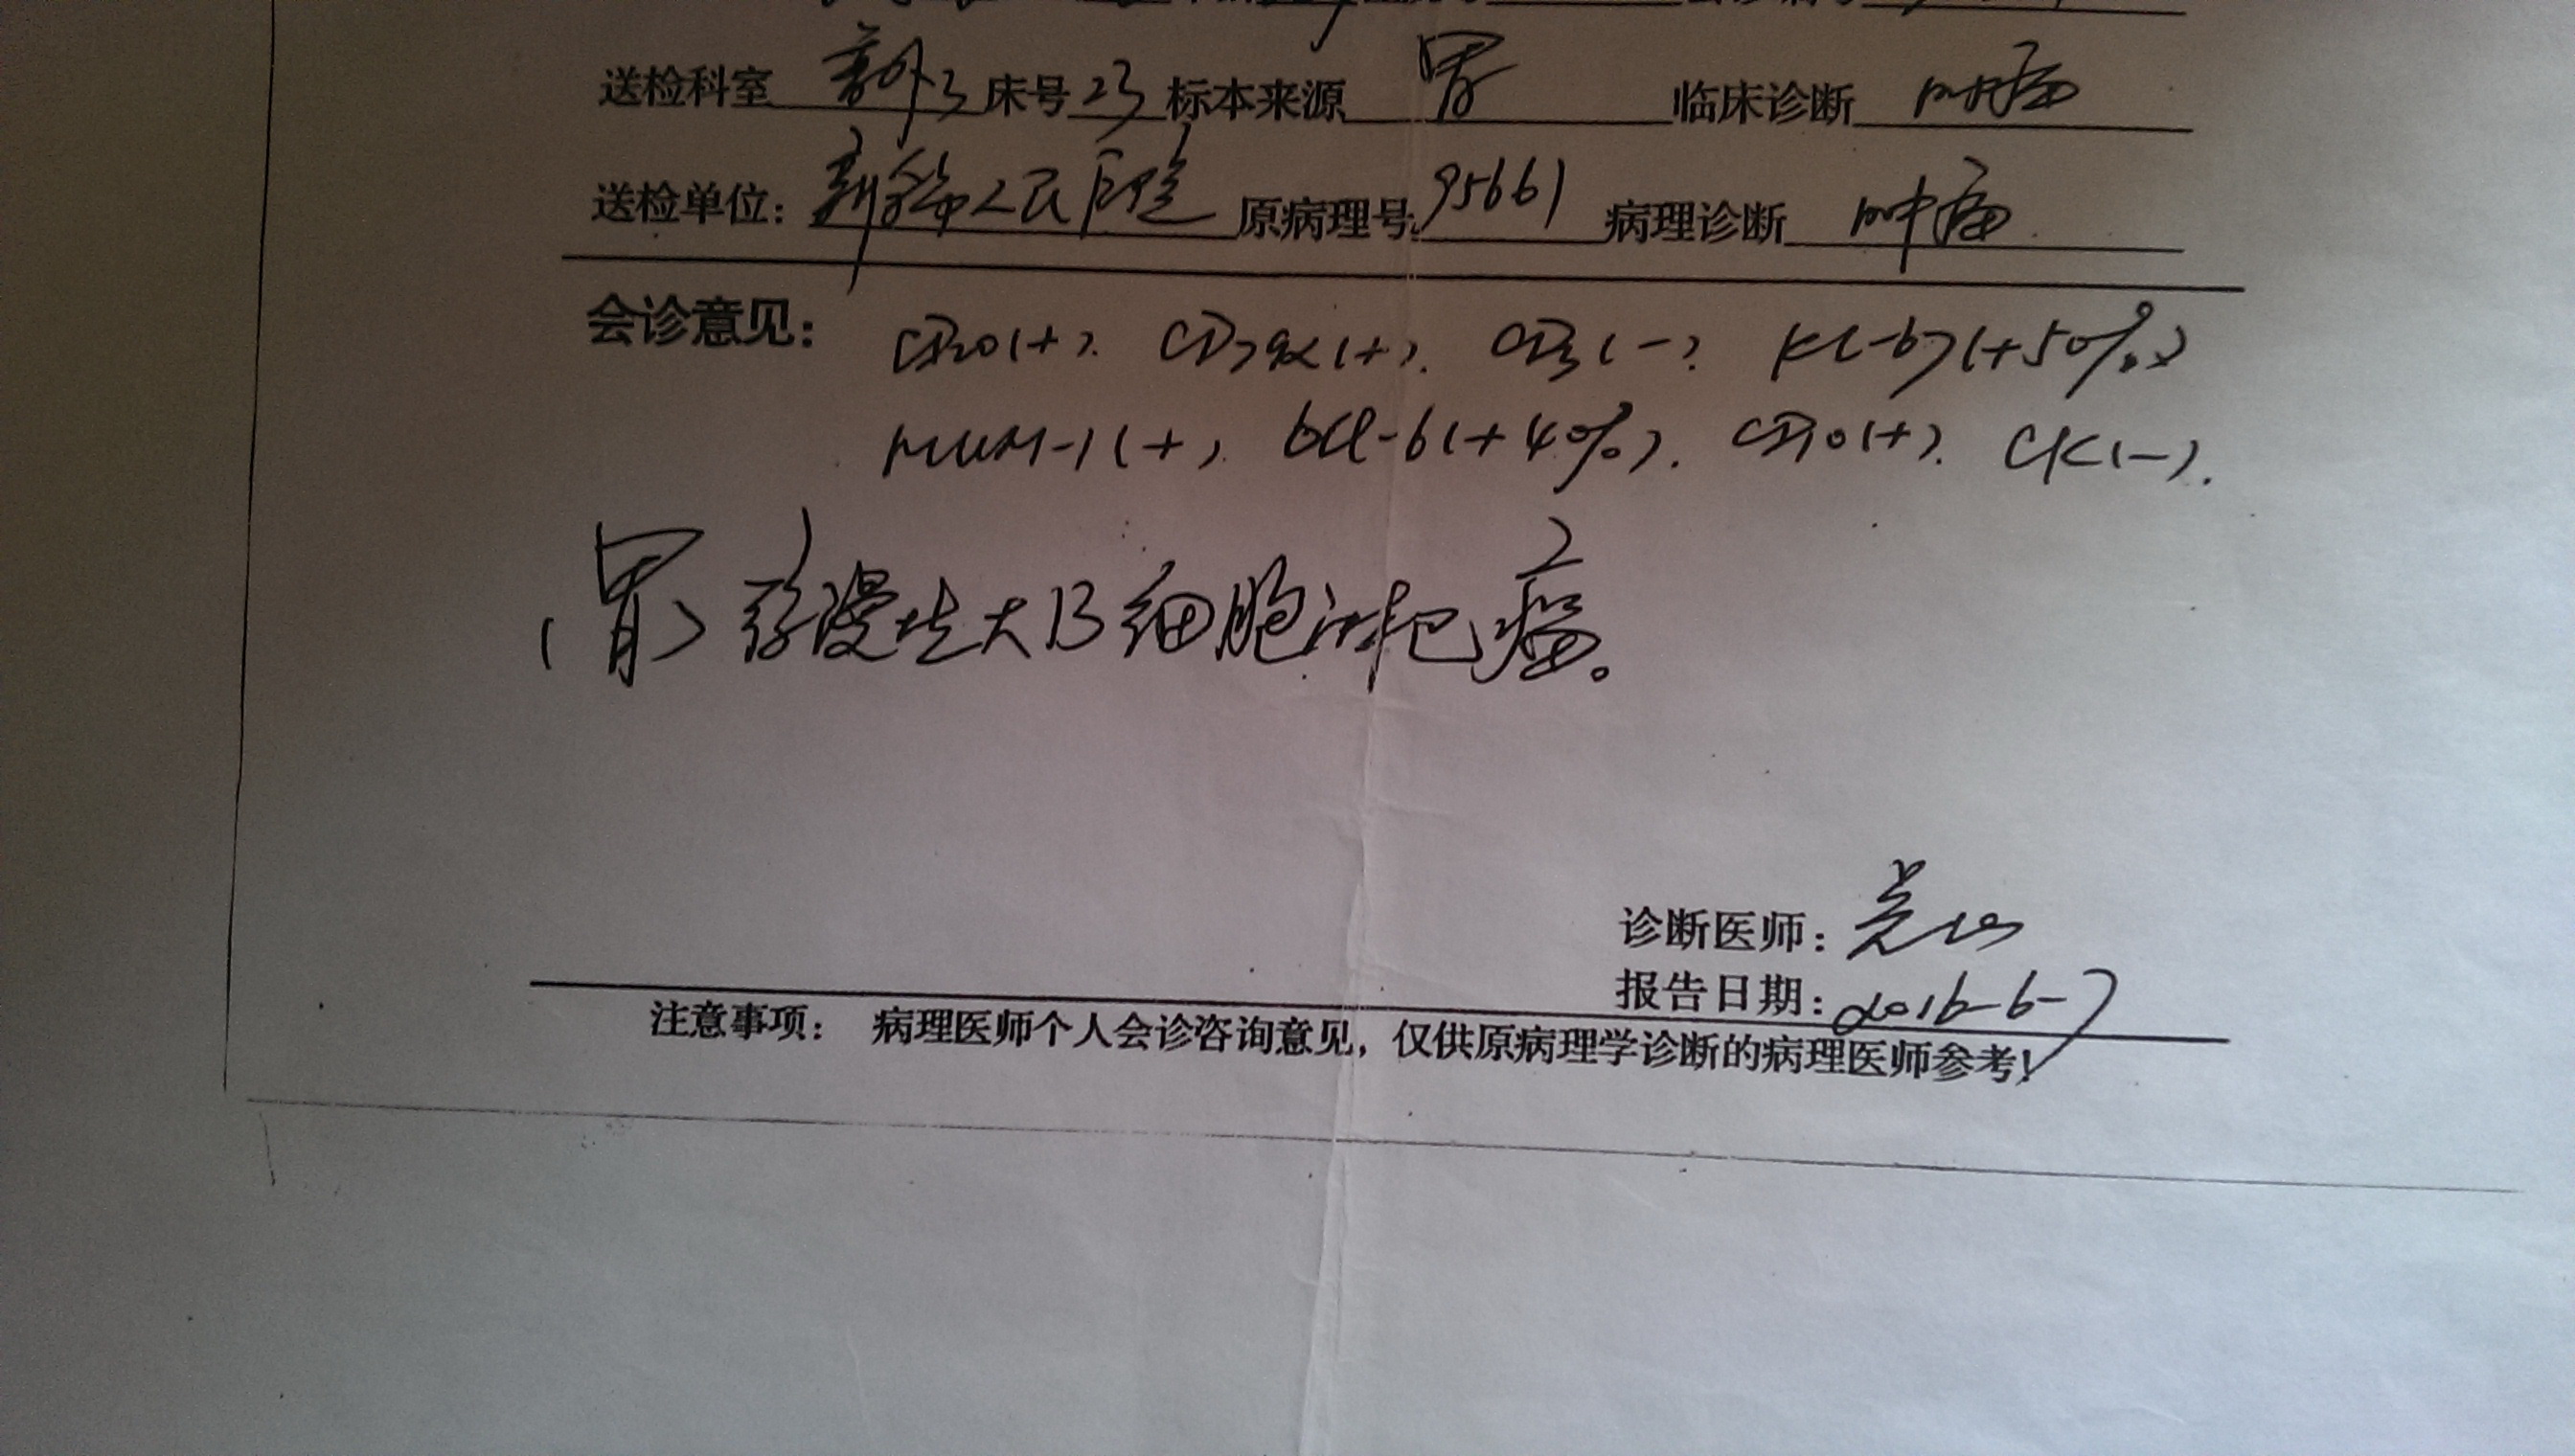 送检科室 外3 床号 23 标本来源 胃 临床诊断 肿瘤
送检单位: 人民医院 原病理号 95661 病理诊断 肿瘤
会诊意见: CD20(+). CD79α(+). CD3(-). Ki-67(+50%).
MUM-1(+). bcl-6(+40%). CD10(+). CK(-).
(胃)弥漫性大B细胞淋巴瘤。
诊断医师:
报告日期: 2016-6-7
注意事项: 病理医师个人会诊咨询意见,仅供原病理学诊断的病理医师参考!